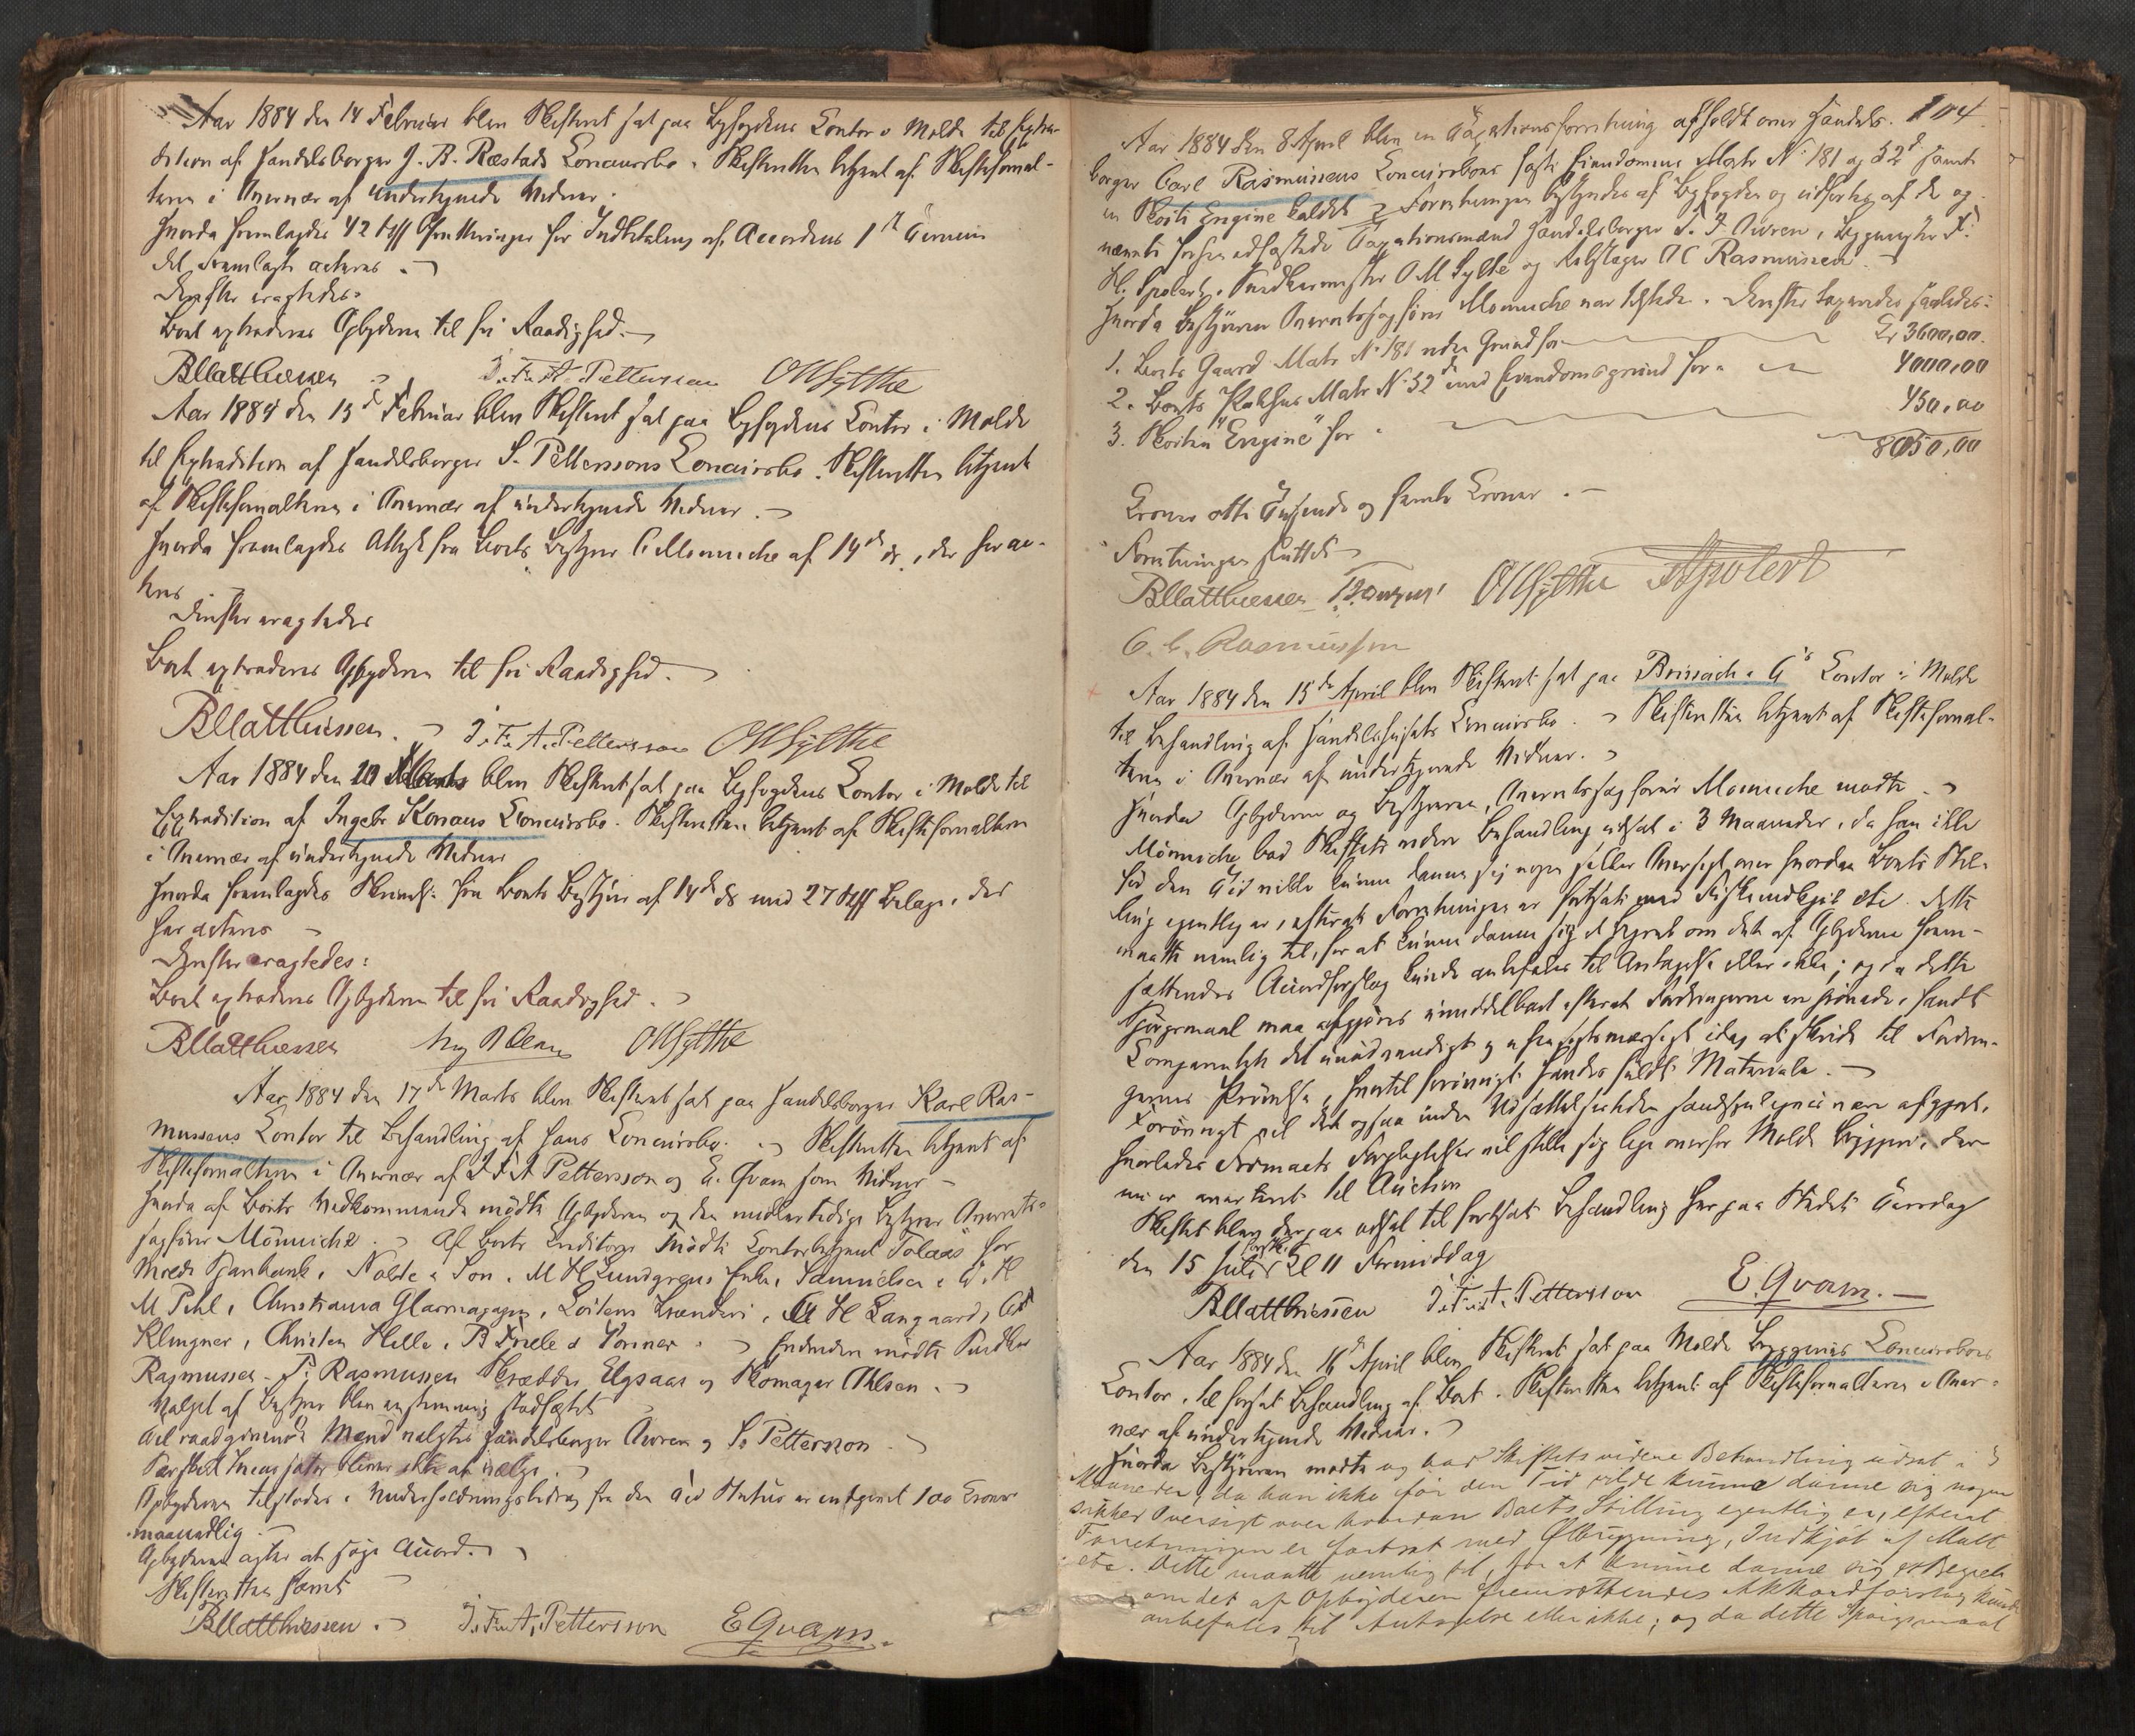 Aar 1884 den 14 Februar blev Skifteret sat paa Byfogdens Contor i Molde til Extra-
dition af Handelsborger J. B. Ræstads Concursbo. Skifteretten betjent af Skifteforval-
teren i Overvær af undertegnede Vidner.
Hvorda fremlagdes 42 Stkr Qvitteringer for Indbetaling af Accordens 1ste Termin
Det Fremlagte acteres.
Derefter eragtedes:
Boet extraderes Opbyderen til fri Raadighed.
BMatthiessen J. F. A. Pettersson OMSylthe
Aar 1884 den 15de Februar blev Skifteret sat paa Byfogdens Contor i Molde
til Extradition af Handelsborger S. Pettersons Concursbo. Skifteretten betjent
af Skifteforvalteren i Overvær af undertegnede Vidner.
Hvorda fremlagdes Attest fra Boets Bestyrer Monniche af 14de ds., der her ac-
teres
Derefter eragtedes
Boet extraderes Opbyderen til fri Raadighed.
BMatthiessen. J. F. A. Pettersson OMSylthe
Aar 1884 den blev Skifteret sat paa Byfogdens Contor i Molde til
Extradition af Ingebr Konows Concursbo. Skifteretten betjent af Skifteforvalteren
i Overvær af undertegnede Vidner
Hvorda fremlagdes Skrivelse fra Boets Bestyrer af 14de ds med 27 Stkr Bilage, der
her acteres
Derefter eragtedes:
Boet extraderes Opbyderen til fri Raadighed.
BMatthiessen OMSylthe
Aar 1884 den 17de Marts blev Skifteret sat paa Handelsborger Karl Ras-
mussens Contor til Behandling af Hans Concursbo. Skifteretten betjent af
Skifteforvalteren i Overvær af J F A Pettersson og E. Qvam som Vidner
Hvorda af Boets Vedkommende mødte Opbyderen og den midlertidige Bestyrer Overrets-
sagfører Mönniche. Af Boets Creditorer mødte Contorbetjent Tolaas for
Molde Sparebank, Nolte & Son, M H Lundgrens Enke, Samuelsen &
M Pihl, Christiania Glasmagasin, Løitens Brænderi, H Langaard,
Klingner, Christen Helle, B Friele & Sønner. Endvidere mødte Snedker
Rasmussen, P. Rasmussen Skrædder Elgsaas og Skomager Ahlsen.
Valget af Bestyrer blev enstemmig stadfæstet
Til raadgivende Mænd valgtes Handelsborger Owren og S. Petterson
Særskilt Incassator bliver ikke at vælge.
Opbyderen tilstodes i Underholdningsbidrag fra den Tid Status er indgivet 100 Kroner
maanedlig.
Opbyderen agter at søge Accord.
Skifteretten hævet
BMatthiessen. J. F. A. Pettersson EQvam.
104
Aar 1884 den 8 April blev en Taxationsforretning afholdt over Handels-
borger Carl Rasmussens Concursboes faste Eiendomme Matr No 181 og 52d samt
en Skøite Engine kaldet. Forretningen bestyredes af Byfogden og udførtes af de op-
nævnte forhen edfæstede Taxationsmænd Handelsborger T. F. Owren, Byggmester F.
H. Spolert, Snedkermester O M Sylte og Rebslager O C Rasmussen
Hvorda Bestyreren Overretssagfører Monniche var tilstede. Derefter taxeredes saaledes:
1. Boets Gaard Matr No 181 uden Grund for Kr 3600,00
2. Boets Pakhus Matr No 52d med Eiendomsgrund for 4000,00
3. Skøiten "Engine" for 450,00
8050,00
Kroner otte Tusende og femti Kroner.
Forretningen sluttet
BMatthiessen TFOwren OMSylthe FHSpolert
O. C. Rasmussen
Aar 1884 den 15de April blev Skifteret sat paa Brissach & Cos Contor i Molde
til Behandling af Handelshusets Concursbo. Skifteretten betjent af Skifteforval-
teren i Overvær af undertegnede Vidner.
Hvorda Opbyderne og Bestyreren, Overretssagfører Monniche mødte.
Mönniche bad Skiftets videre Behandling udsat i 3 Maaneder, da han ikke
før den Tid vilde kunne danne sig nogen sikker Oversigt over hvordan Boets Stil-
ling egentlig er, efterat Forretningen er fortsat med Fiskeindkjøb etc. Dette
maatte nemlig til, for at kunne danne sig et Begreb om det af Opbyderne frem-
sættendes Accordforslag kunde anbefales til Antagelse eller ikke; og da dette
Spørgsmaal maa afgjøres umiddelbart efterat Fordringerne ere prøvede, fandt
Comparenten det unødvendigt og uhensigtsmæssigt idag at skride til Fordrin-
gernes Prøvelse, hvortil forøvrigt Haves fuldt Materiale.
Forøvrigt vil det ogsaa inden Udsættelsestiden sandsynligvis være afgjort,
hvorledes Firmaets Forpligtelser vil stille sig lige overfor Molde Bryggeri, der
nu er averteret til Auction
Skiftet blev derpaa udsat til fortsat Behandling her paa Stedet Tirsdag
den 15 Juli førstk. Kl 11 Formiddag
BMatthiessen J. F. A. Pettersson E. Qvam.
Aar 1884 den 16de April blev Skifteret sat paa Molde Bryggeries Concursboes
Contor til fortsat Behandling af Boet. Skifteretten betjent af Skifteforvalteren i Over-
vær af undertegnede Vidner.
Hvorda Bestyreren mødte og bad Skiftets videre Behandling udsat i 3
Maaneder, da han ikke før den Tid vilde kunne danne sig nogen
sikker Oversigt over hvordan Boets Stilling egentlig er, efterat
Forretningen er fortsat med Ølbrygning, Indkjøb af Malt
etc. Dette maatte nemlig til, for at kunne danne sig et Begreb
om det af Opbyderen fremsættendes Akkordforslag kunde
anbefales til Antagelse eller ikke; og da dette Spørgsmaal